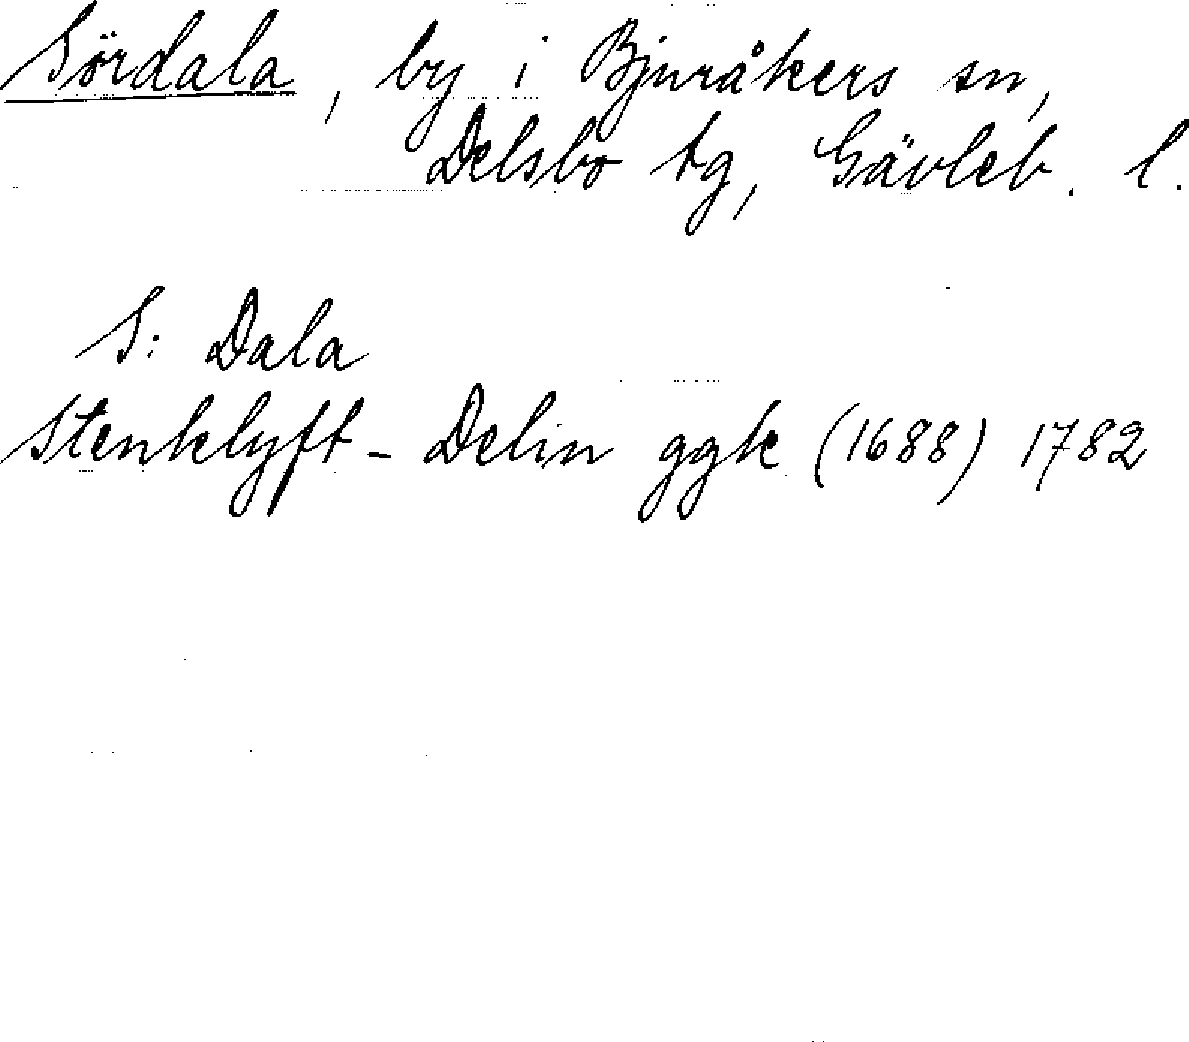 Sördala, by i Bjuråkers sn,
Delsbo tg, Gävleb. l.
S: Dala
Stenklyft - Delin ggk (1688) 1782